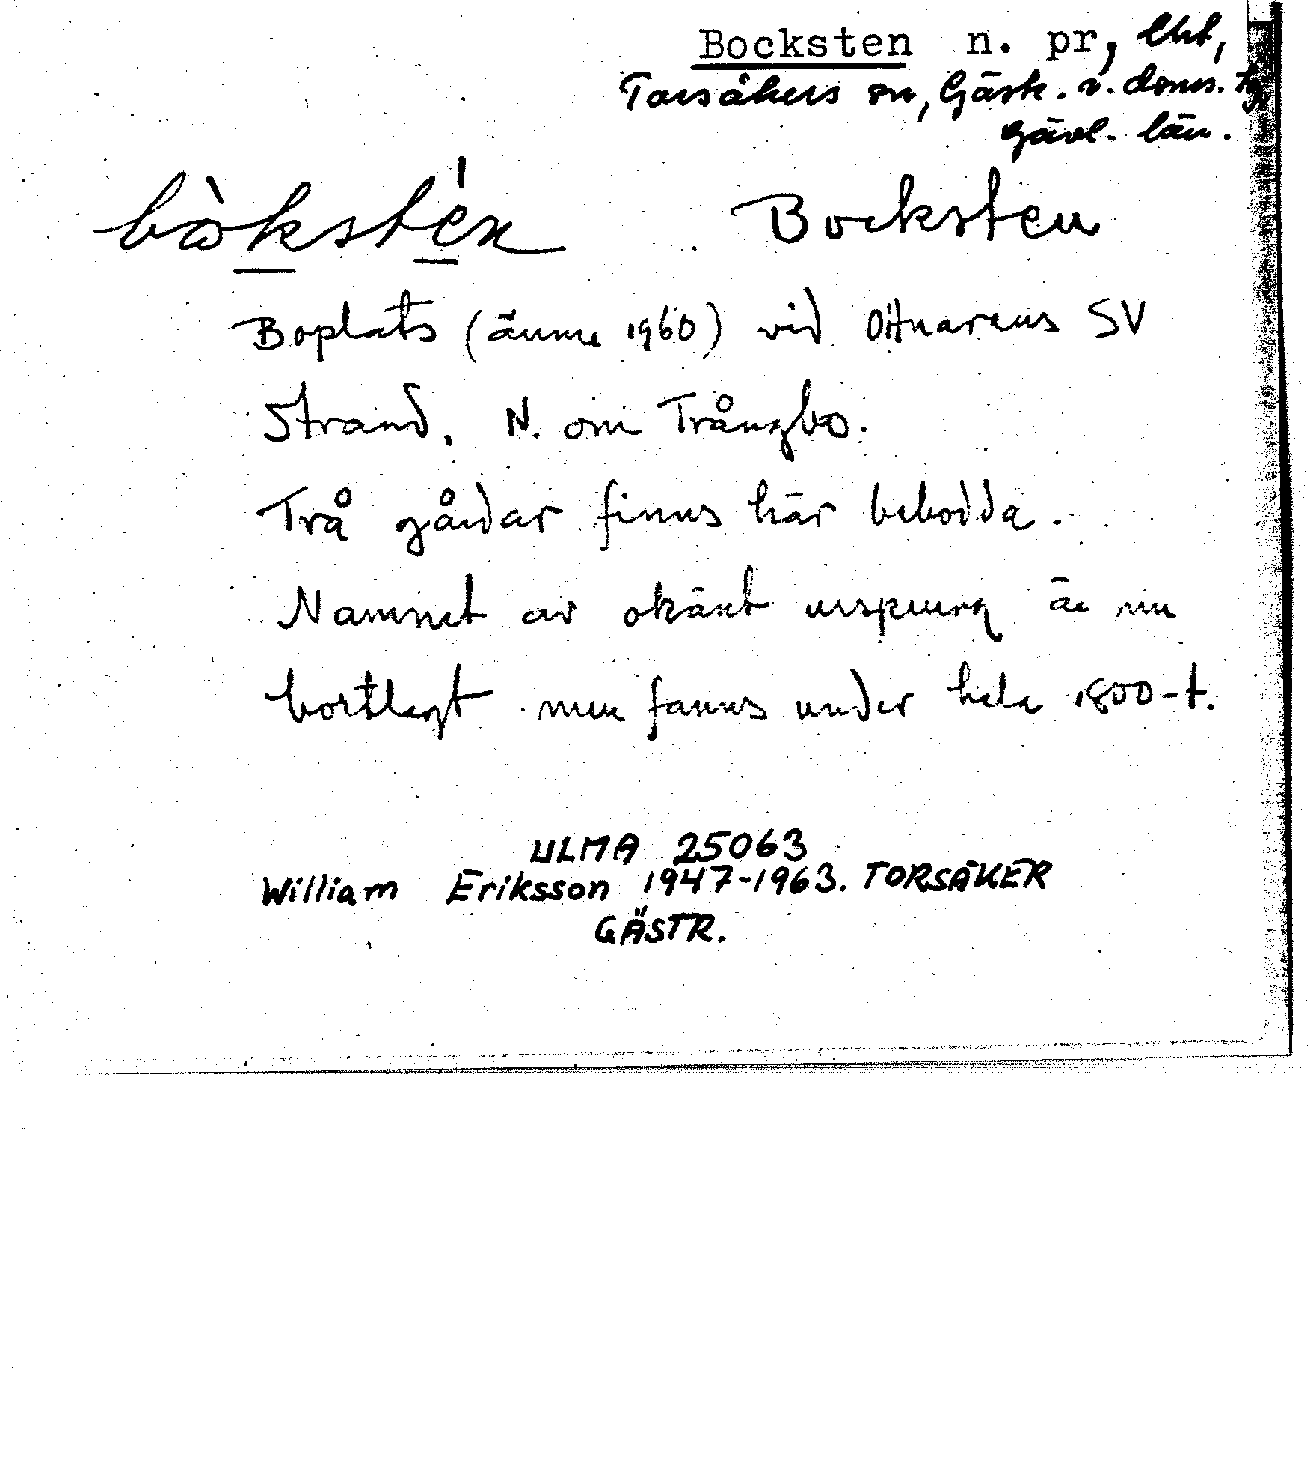 Bocksten n. pr,
Torsåkers sn, Gästr. v. doms.
Gävl. län.
bòkstén Bocksten
Boplats (ännu 1960) vid Ottnarens SV
Strand, N. om Trångbo.
Två gårdar finns här bebodda.
Namnet av okänt ursprung är nu
bortlagt men fanns under hela 1800-t.
ULMA 25063
William Eriksson 1947-1963. TORSÅKER
GÄSTR.